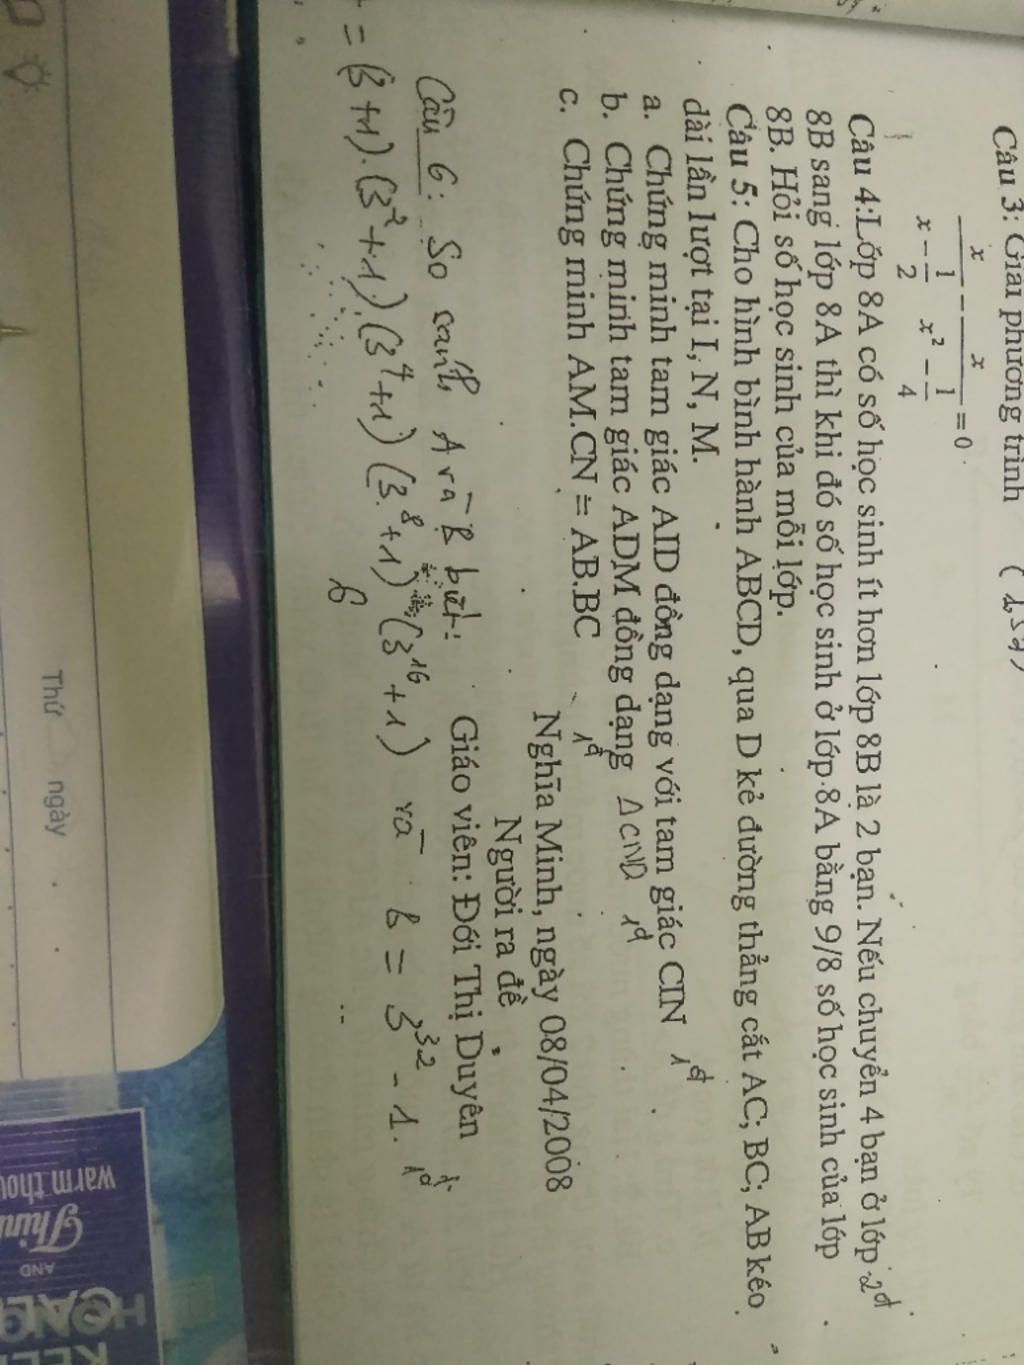 Câu 3: Giải phương trình
x / (x - 1/2) - x / (x² - 1/4) = 0
Câu 4:Lớp 8A có số học sinh ít hơn lớp 8B là 2 bạn. Nếu chuyển 4 bạn ở lớp 2đ
8B sang lớp 8A thì khi đó số học sinh ở lớp 8A bằng 9/8 số học sinh của lớp
8B. Hỏi số học sinh của mỗi lớp.
Câu 5: Cho hình bình hành ABCD, qua D kẻ đường thẳng cắt AC; BC; AB kéo
dài lần lượt tại I, N, M.
a. Chứng minh tam giác AID đồng dạng với tam giác CIN 1đ
b. Chứng minh tam giác ADM đồng dạng Δ CND 1đ
c. Chứng minh AM.CN = AB.BC 1đ
Nghĩa Minh, ngày 08/04/2008
Người ra đề
Giáo viên: Đới Thị Duyên
Câu 6: So sánh A và B biết:
= (3+1).(3²+1).(3⁴+1)(3⁸+1)(3¹⁶+1) và B = 3³² - 1. 1đ
Thứ ngày
warm thou
Thin
AND